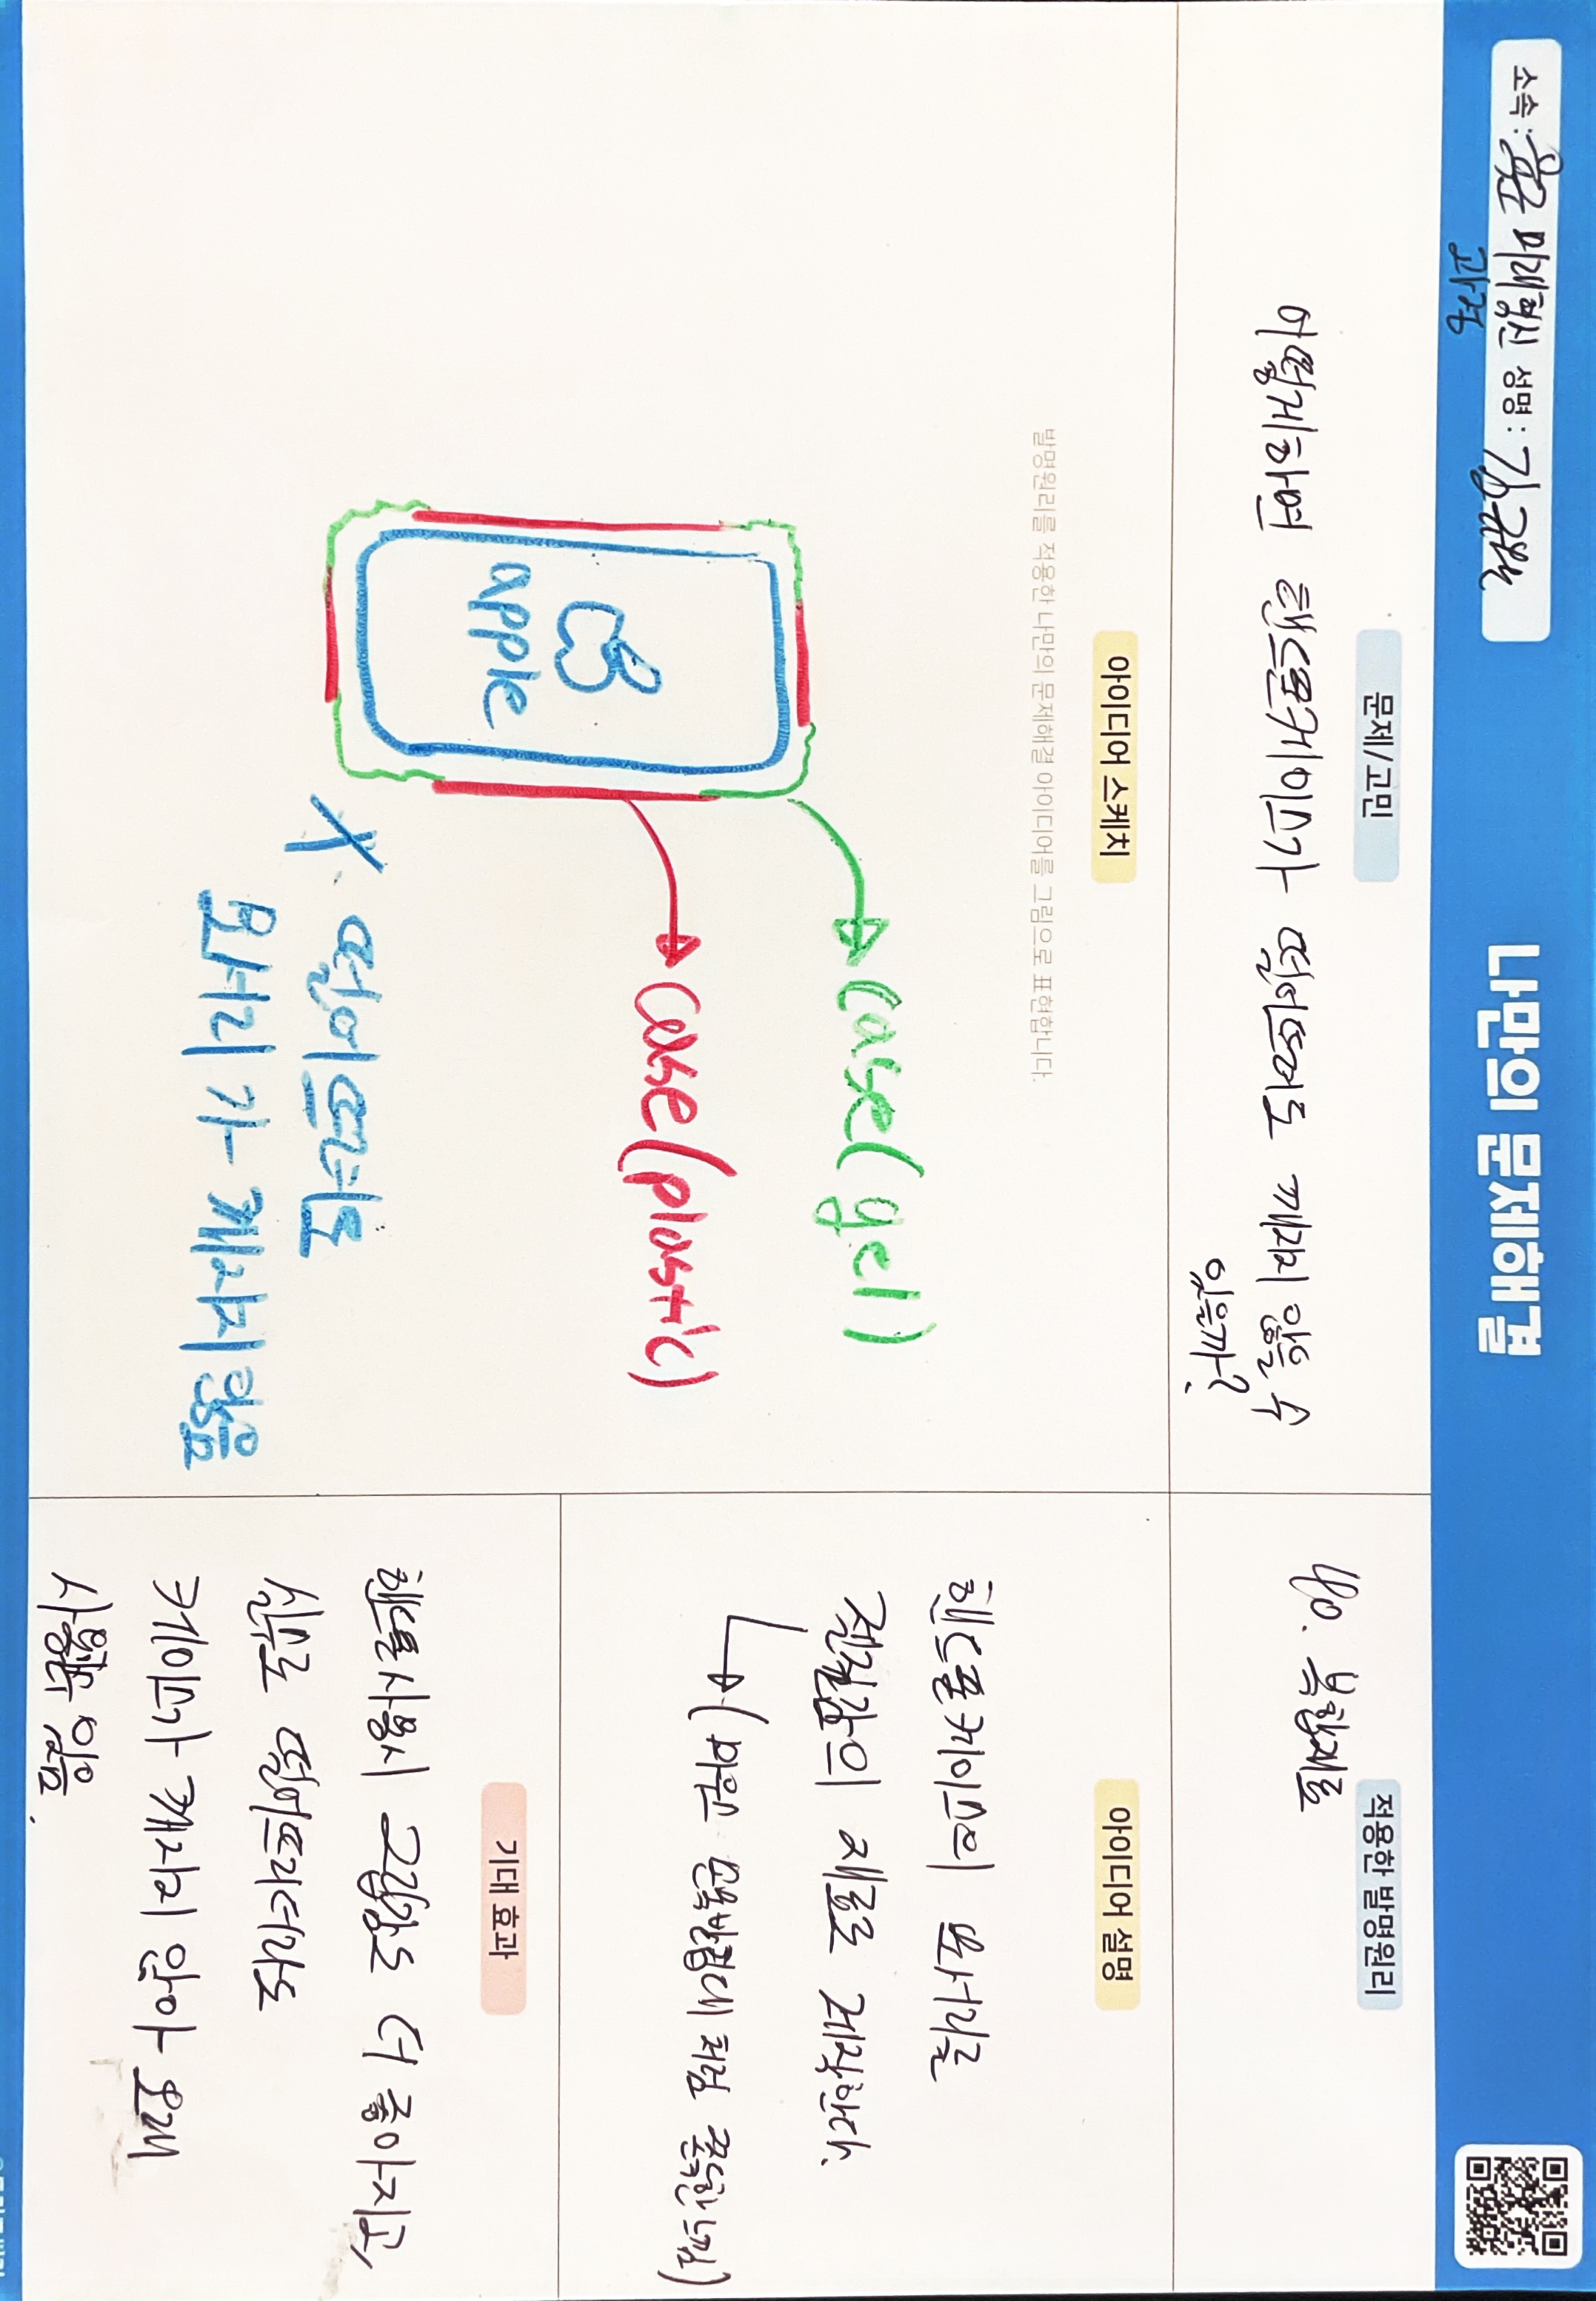 나만의 문제해결
소속: 융모 미래혁신 성명:
과정
문제/고민
어떻게하면 핸드폰케이스가 떨어뜨려도 깨지지 않을 수
있을까?
적용한 발명원리
40. 복합재료
아이디어 스케치
발명원리를 적용한 나만의 문제해결 아이디어를 그림으로 표현합니다.
apple
case(gel)
case(plastic)
X. 떨어뜨려도
모서리가 깨지지않음
아이디어 설명
핸드폰케이스의 모서리를
젤질감의 재료로 제작한다.
(마우스 손목받침대 처럼 쫀득한느낌)
기대 효과
핸드폰사용시 그립감도 더 좋아지고,
실수로 떨어뜨리더라도
케이스가 깨지지 않아 오래
사용할수 있음.